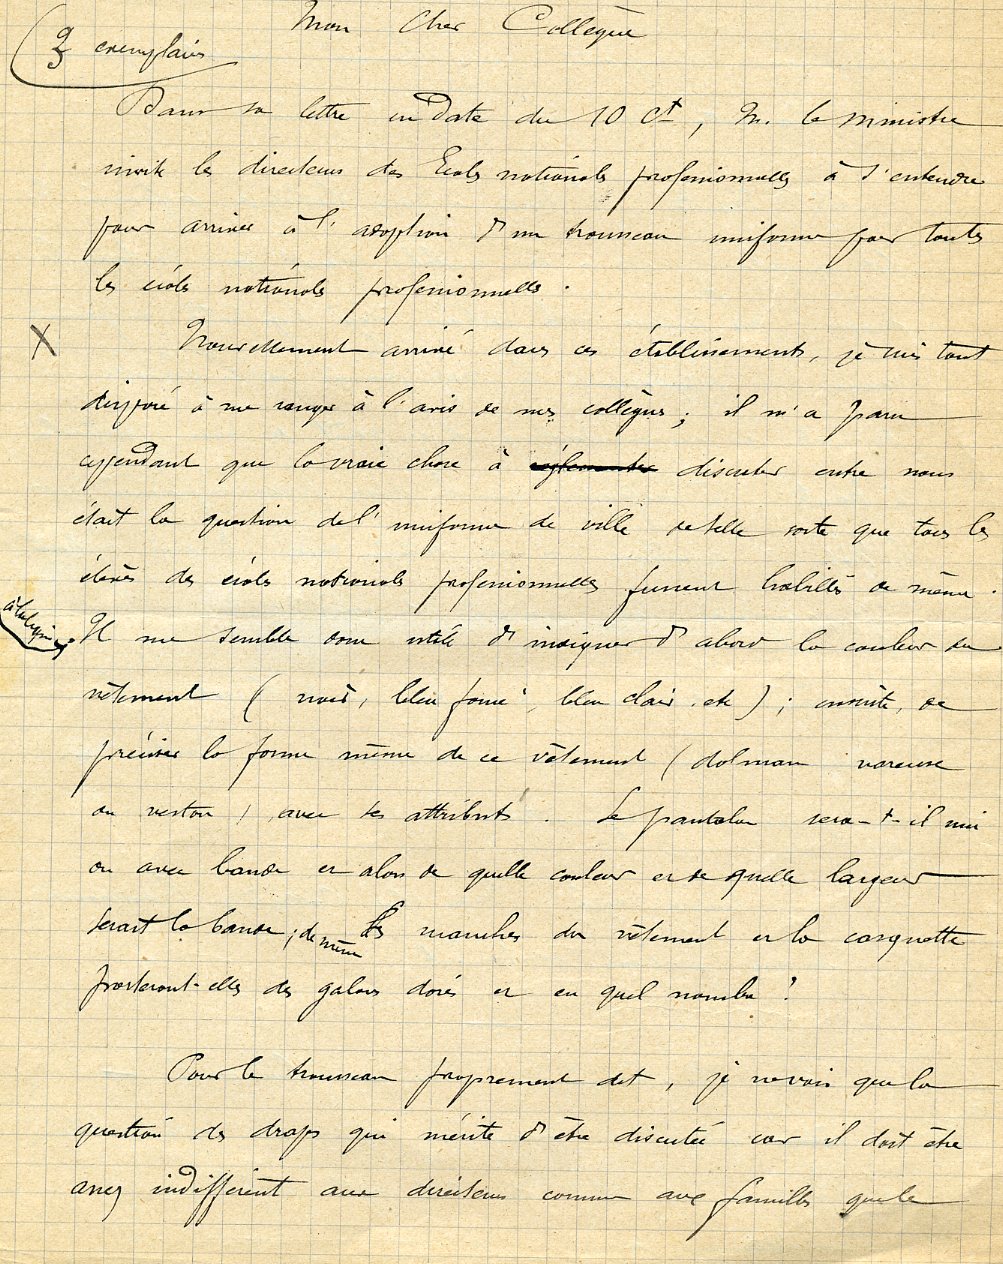 Mon Cher Collègue
exemplaires
Dans sa lettre en date du 10 Ct, M. le Ministre
invite les directeurs des Ecoles nationales professionnelles à s'entendre
pour arriver à l'adoption d'un trousseau uniforme pour toutes
les écoles nationales professionnelles.
X Nouvellement arrivé dans ces établissements, je suis tout
disposé à me ranger à l'avis de mes collègues ; il m'a paru
cependant que la vraie chose à réglementer discuter entre nous
était la question de l'uniforme de ville de telle sorte que tous les
élèves des écoles nationales professionnelles fussent habillés de même.
Il me semble donc utile d'indiquer d'abord la couleur du
vêtement ( noir, bleu foncé, bleu clair. etc ) ; ensuite, de
préciser la forme même de ce vêtement ( dolman vareuse
ou veston ) avec ses attributs. Le pantalon sera-t-il uni
ou avec bande et alors de quelle couleur et de quelle largeur
serait la bande ; de même les manches du vêtement et la casquette
porteront-elles des galons dorés et en quel nombre ?
Pour le trousseau proprement dit, je ne vois que la
question des draps qui mérite d'être discutée car il doit être
assez indifférent aux directeurs comme aux familles que le